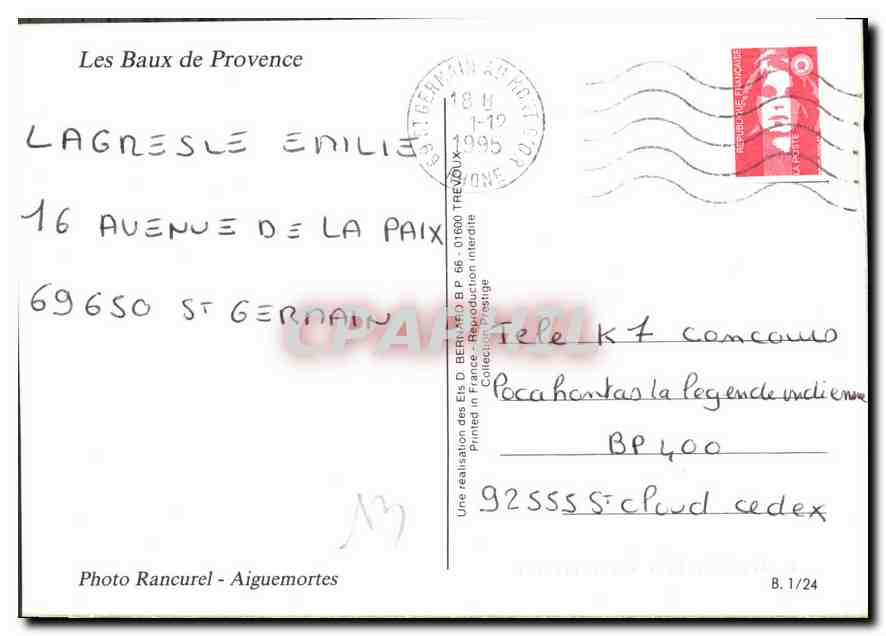 Les Baux de Provence
LAGRESLE EMILIE
16 AVENUE DE LA PAIX
69650 ST GERMAIN
Photo Rancurel - Aiguemortes
69 ST GERMAIN AU MONT D'OR
18 H
1-12
1995
RHONE
REPUBLIQUE FRANÇAISE
LA POSTE
Une réalisation des Ets D. BERNARD B.P. 66 - 01600 TREVOUX
Printed in France - Reproduction interdite
Collection Prestige
CPAPHIL
Tele K7 concours
Pocahontas la legende indienne
BP 400
92555 St cloud cedex
13
B. 1/24